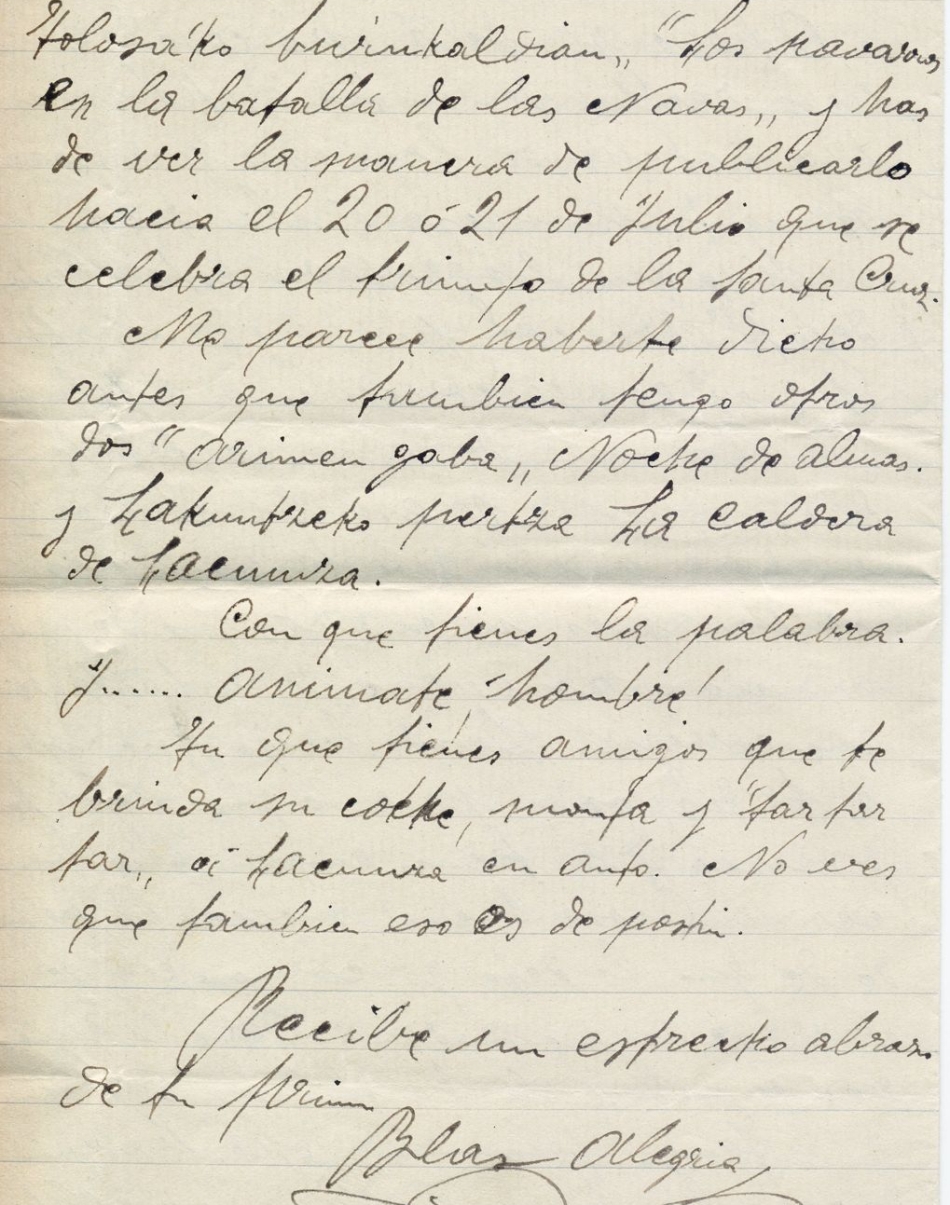 Tolosa'ko burnikaldian,, "Los navarros
en la batalla de las Navas,, y has
de ver la manera de publicarlo
hacia el 20 ó 21 de Julio que se
celebra el triunfo de la Santa Cruz.
Me parece haberte dicho
antes que tambien tengo otros
dos "Arimen gaba,, Noche de almas.
y Lakuntzeko pertza La caldera
de Lacunza.
Con que tienes la palabra.
Y...... animate, hombre!
Tu que tienes amigos que te
brinda su coche, monta y "tar tar
tar,, á Lacunza en auto. No ves
que tambien eso es de postin.
Recibe un estrecho abrazo
de tu primo
Blas Alegria